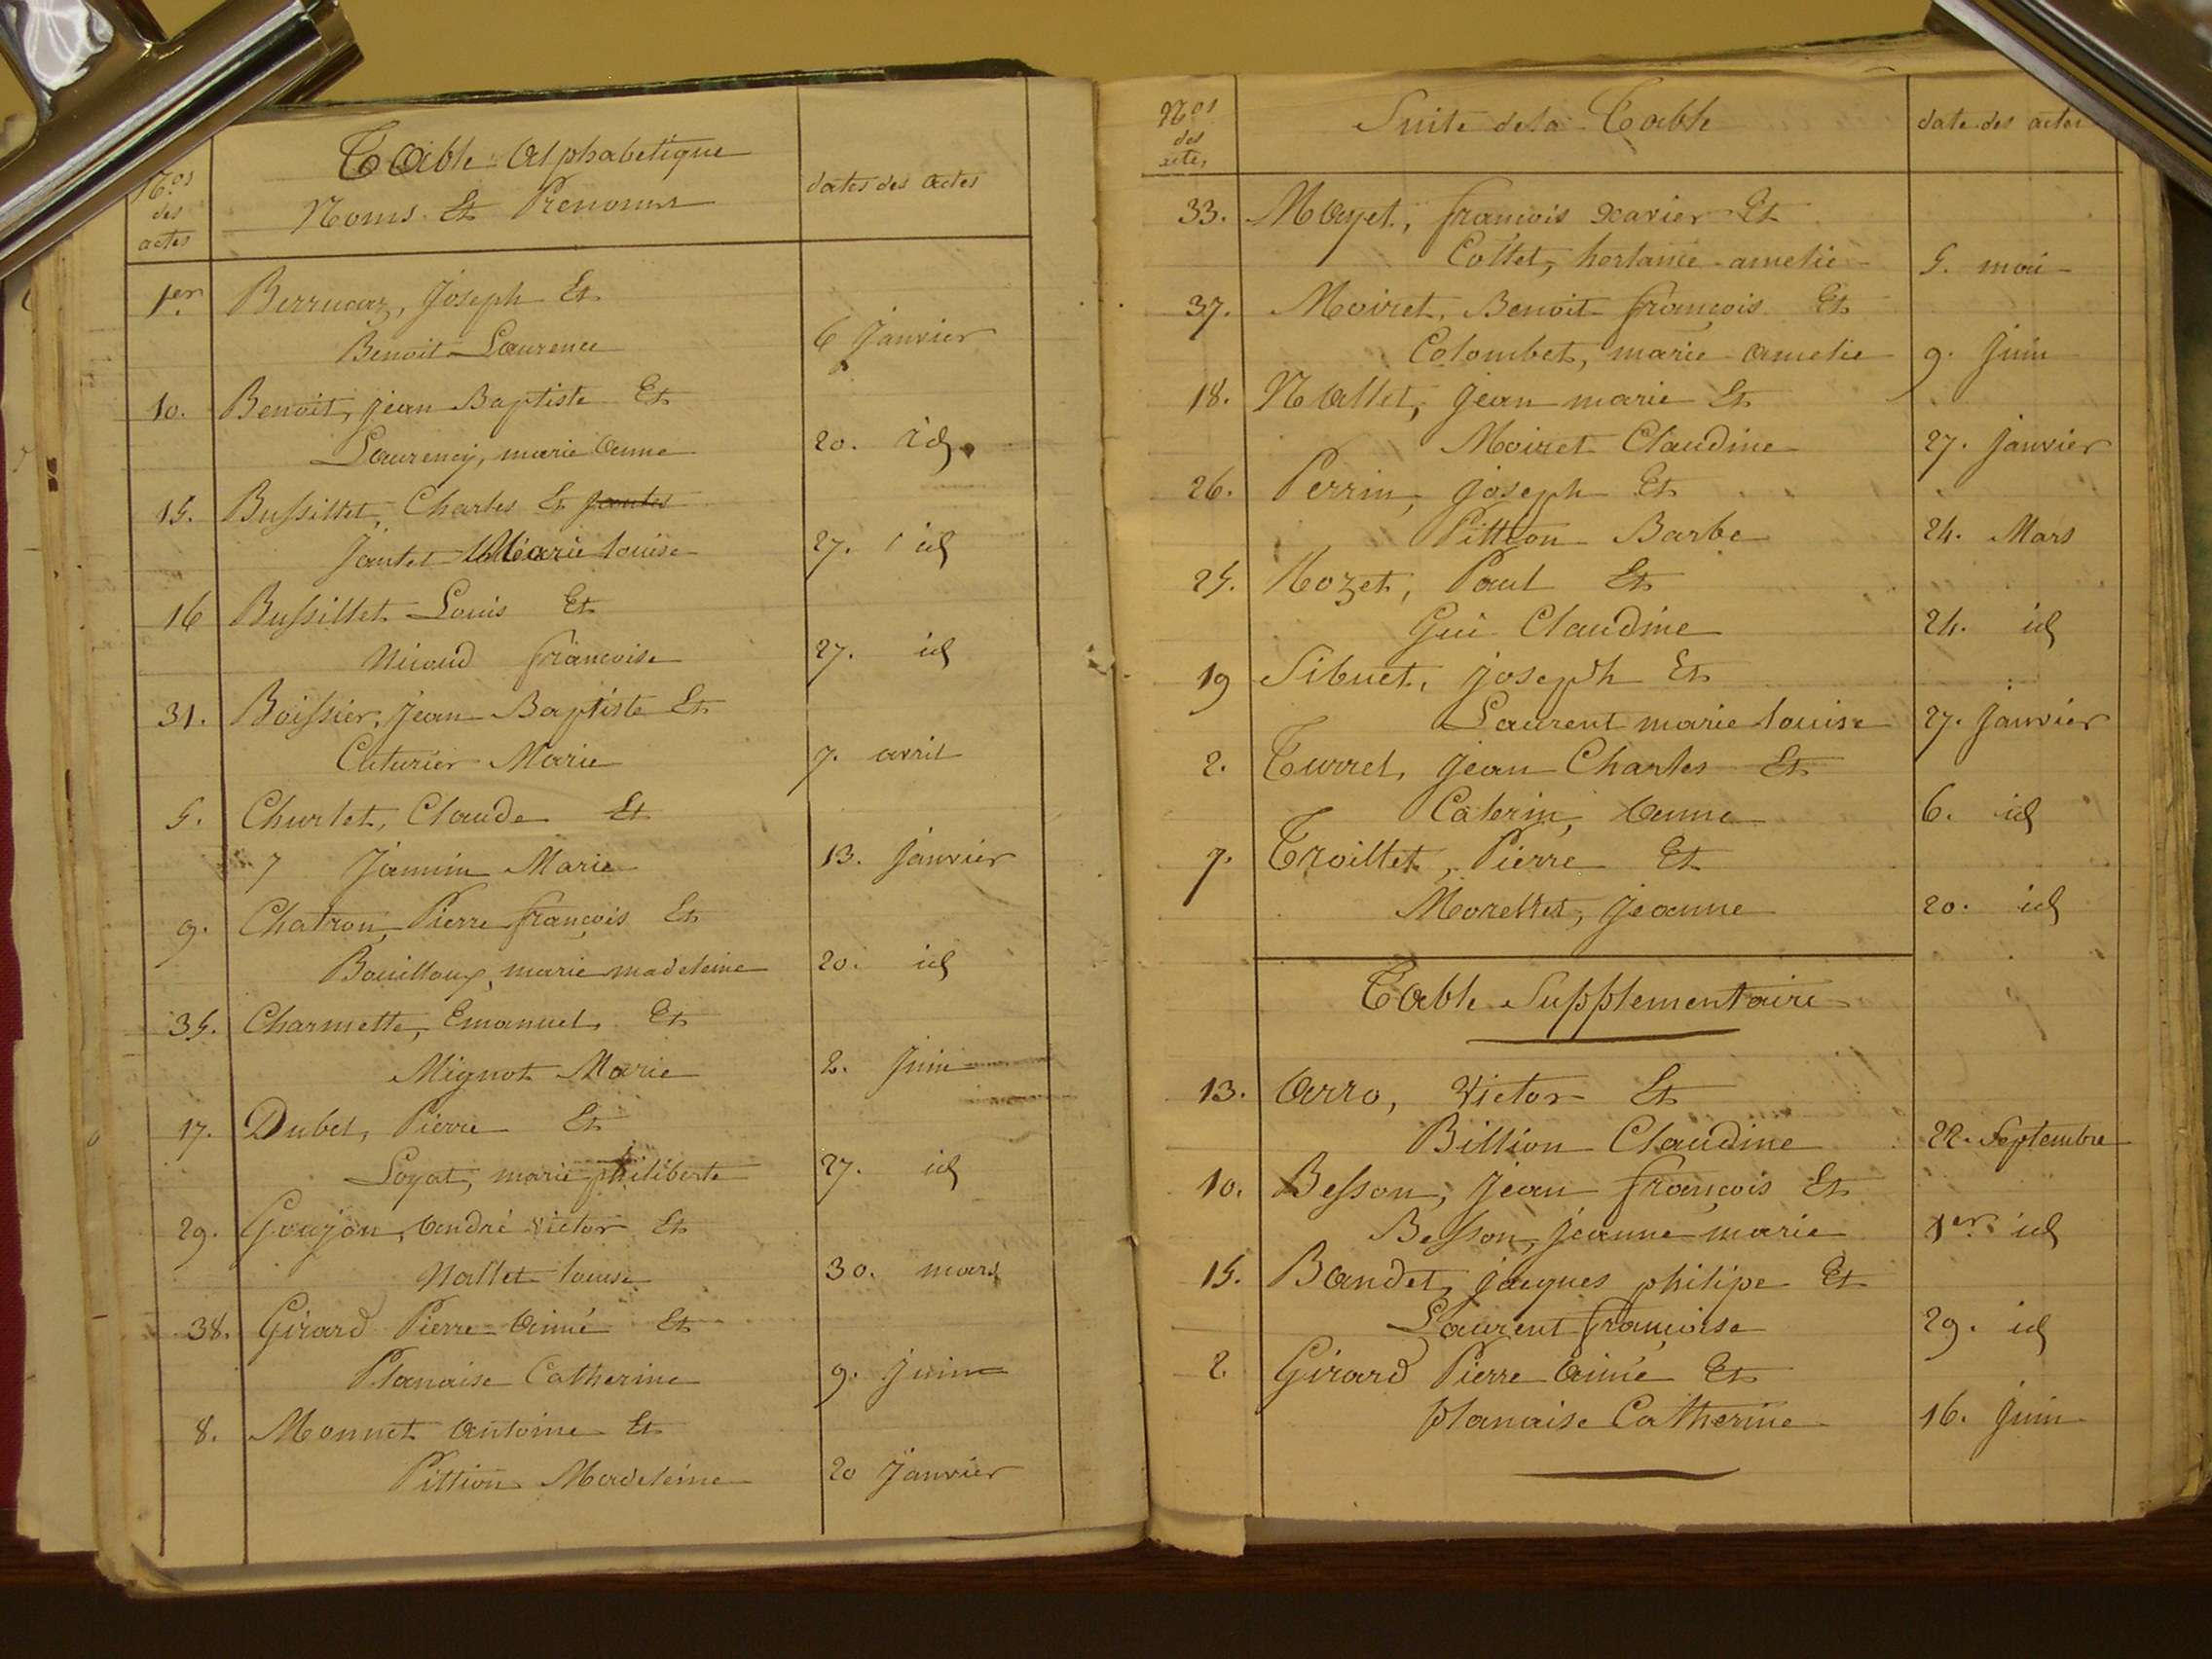 Table Alphabetique
Nos des actes
Noms Et Prenoms
dates des actes
1er Berrucaz, Joseph Et
Benoit Laurence 6 Janvier
10. Benoit, jean Baptiste Et
Laurency, marie anne 20. id
15. Bussillet, Charles Et
Jantet Marie louise 27. id
16 Bussillet Louis Et
Nicoud francoise 27. id
31. Boissier, jean Baptiste Et
Cuturier Marie 7. avril
5. Churlet, Claude Et
Jannin Marie 13. Janvier
9. Chatron, Pierre françois Et
Bouilloux, marie madeleine 20. id
35. Charmette, Emanuel, Et
Mignot Marie 2. Juin
17. Dubet, Pierre Et
Loyat, marie philiberte 27. id
29. Goujon, andré victor Et
Nallet louise 30. mars
38. Girard Pierre aimé Et
Planaise Catherine 9. Juin
8. Monnet antoine Et
Pittion Madeleine 20 Janvier
Nos des actes
Suite de la Table
date des actes
33. Mayet, francois xavier Et
Cottet, hortance amelie 5. mai
37. Moiret, Benoit françois Et
Colombet, marie amelie 9. Juin
18. Nallet, jean marie Et
Moiret Claudine 27. Janvier
26. Perrin, joseph Et
Pittion Barbe 24. Mars
25. Rozet, Paul Et
Gui Claudine 24. id
19 Sibuet, joseph Et
Laurent marie louise 27. Janvier
2. Turrel, jean Charles Et
Caterin, anne 6. id
7. Troillet, Pierre Et
Morellet, jeanne 20. id
Table Supplementaire
13. Arro, Victor Et
Billion Claudine 22. Septembre
10. Besson, jean françois Et
Besson, jeanne marie 1er id
15. Bandet, jacques philipe Et
Laurent françoise 29. id
2. Girard Pierre aimé Et
planaise Catherine 16. Juin